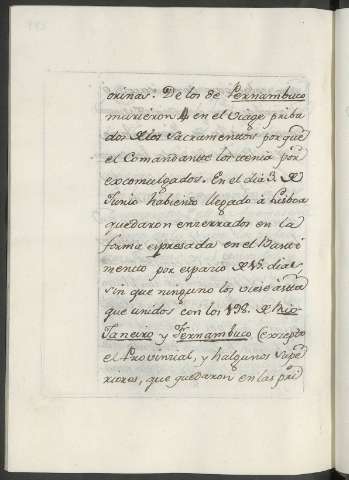 orinas. De los de Pernambuco
murieron 4 en el viage priba
dos de los Sacramentos porque
el Comandante los tenia por
excomulgados. En el dia 3. de
Junio habiendo llegado à Lisboa
quedaron enzerrados en la
forma espresada en el Basti
mento por espazio de 18. dias
sin que ninguno los viese asta
que unidos con los 198. de Rio
Janeiro y Fernambuco (excepto
el Provinzial, y halgunos Supe
riores, que quedaron en las pri